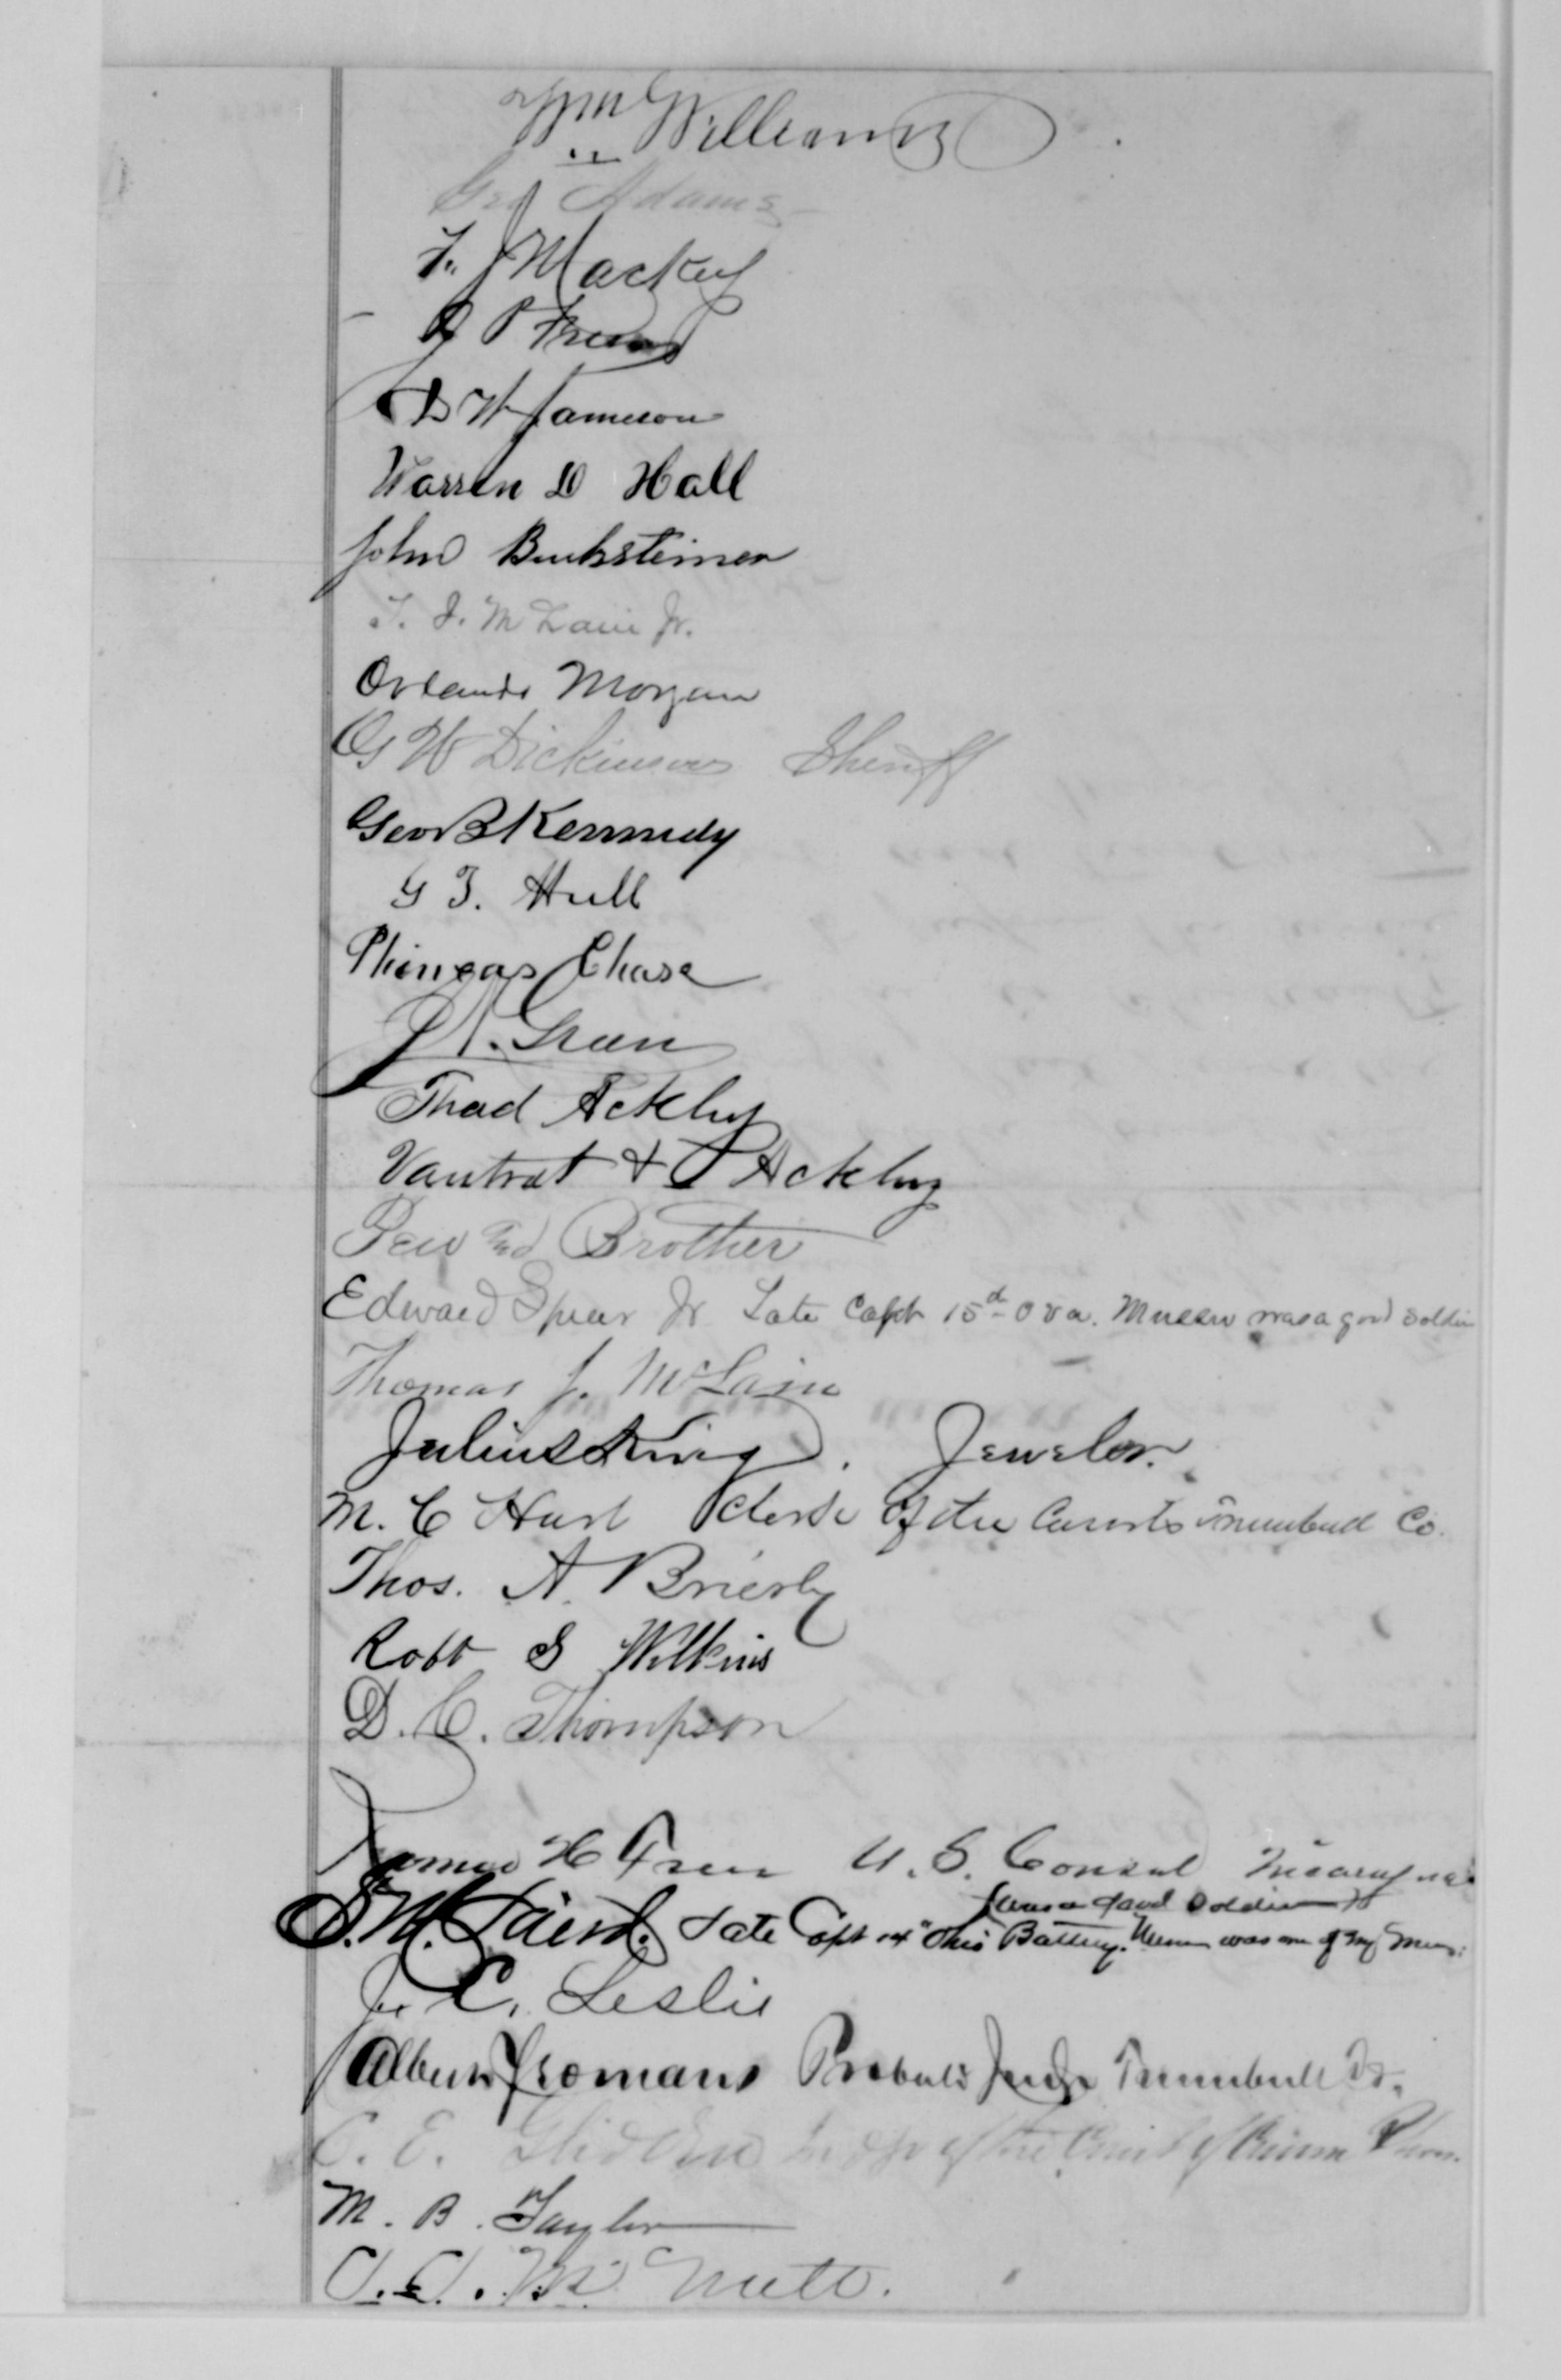 Wm Williams
Geo Adams
F. J Mackey
D W Jameson
Warren D Hall
John
T. J. Mc Lain Jr.
Orlando Morgan
G W Dickinson Sheriff
Geo B Kennedy
G T. Hull
Phineas Chase
Thad Ackley
Vautrot & Ackley
and Brother
Edward Spear Jr Late Capt 15th O V A. was a good soldier
Thomas J. McLain
Julius King. Jeweler.
M. C Hart Clerk of the Courts Trumbull Co.
Thos. A. Brierly
Robt S Wilkins
D. C. Thompson
James H U. S. Consul Nicaragua
was a good soldier
S. M. Late Capt Ohio Battery. was one of my men.
J. C. Leslie
Albert Yeomans Probate Judge Trumbull Co.
C. E. Glidden Judge of the Court of Common Pleas.
M. B. Taylor
Mc Nutt.